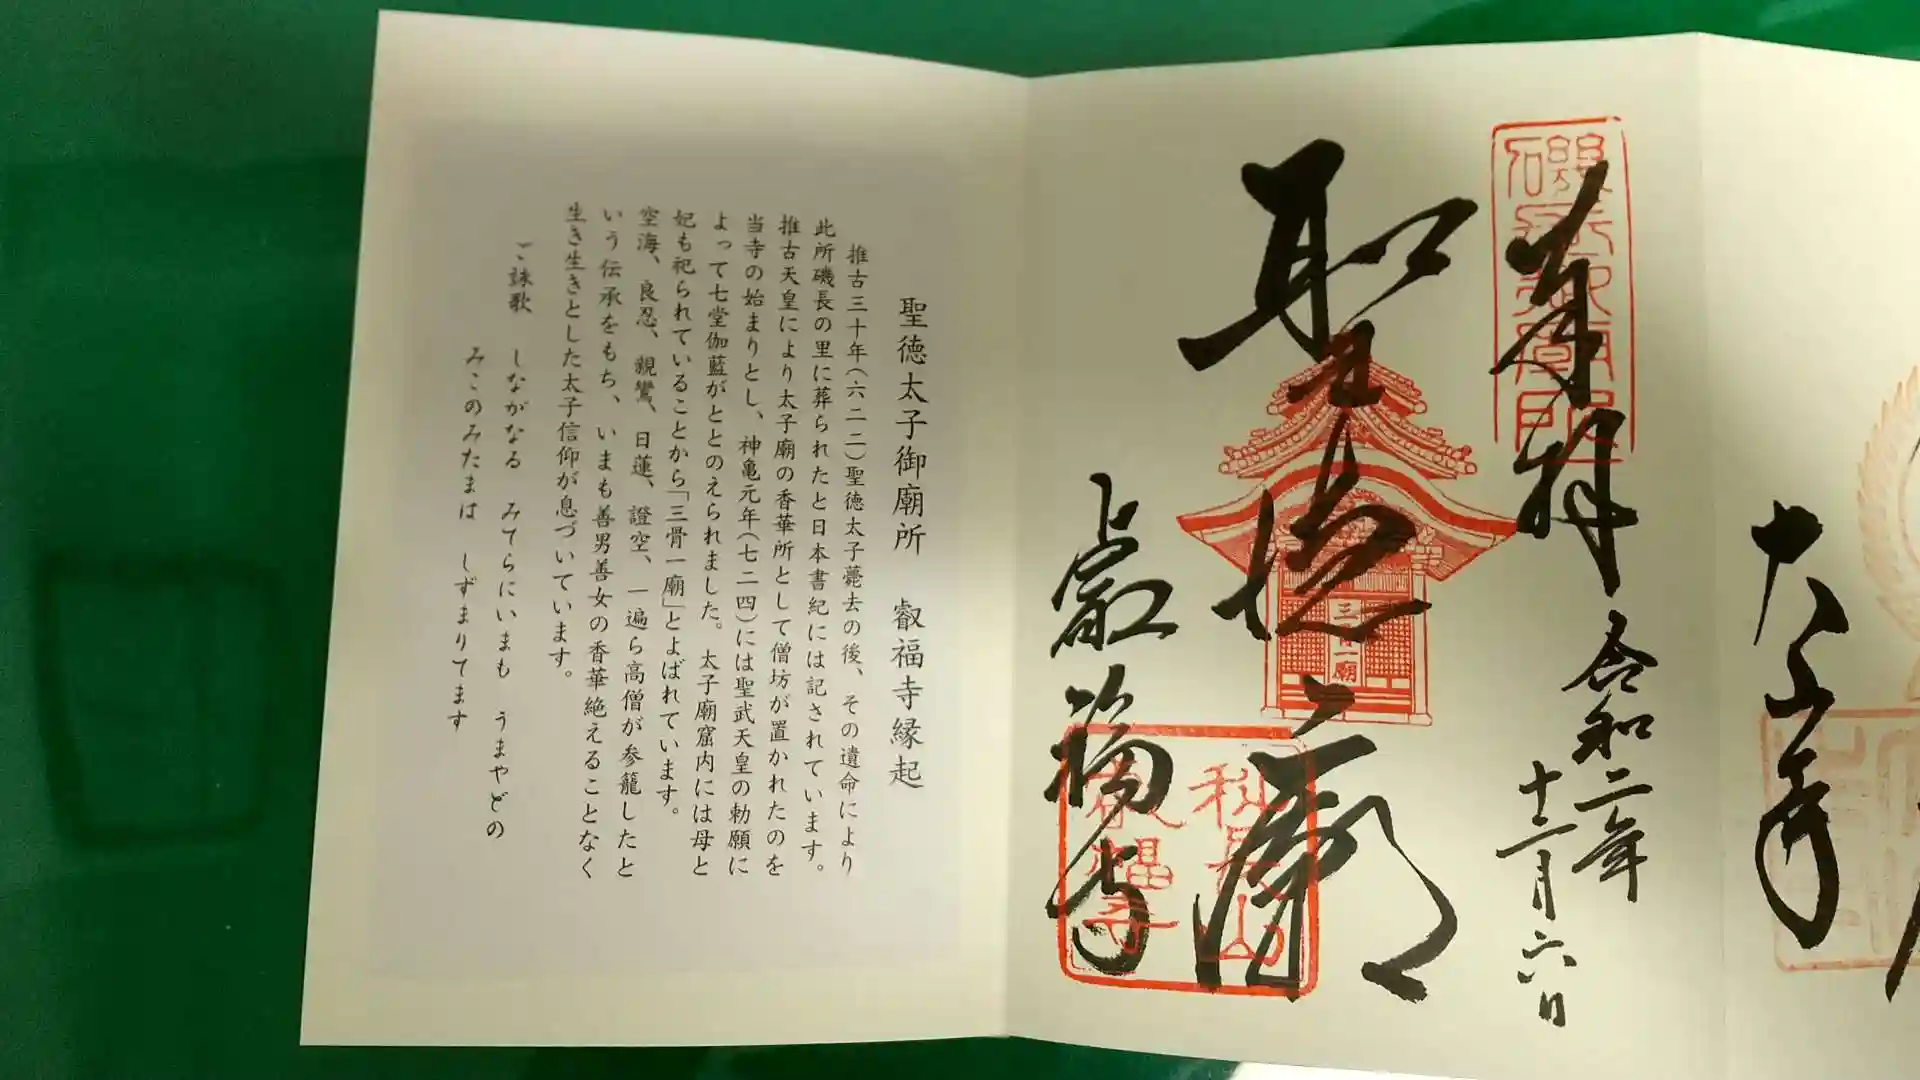 奉拝
令和二年
十二月六日
聖徳廟
叡福寺
三骨一廟
科長山
叡福寺
聖徳太子御廟所　叡福寺縁起
推古三十年（六二二）聖徳太子薨去の後、その遺命により
此所磯長の里に葬られたと日本書紀には記されています。
推古天皇により太子廟の香華所として僧坊が置かれたのを
当寺の始まりとし、神亀元年（七二四）には聖武天皇の勅願に
よって七堂伽藍がととのえられました。太子廟窟内には母と
妃も祀られていることから「三骨一廟」とよばれています。
空海、良忍、親鸞、日蓮、證空、一遍ら高僧が参籠したと
いう伝承をもち、いまも善男善女の香華絶えることなく
生き生きとした太子信仰が息づいています。
ご詠歌　しながなる　みてらにいまも　うまやどの
みこのみたまは　しずまりてます